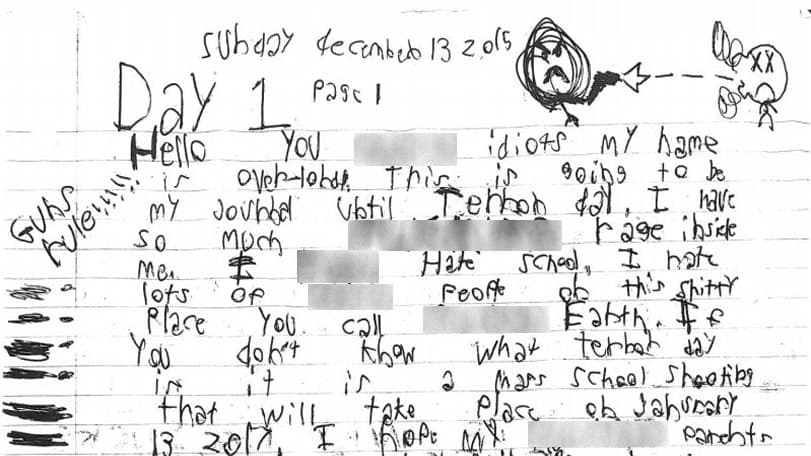 sunday december 13 2015
Day 1
Page 1
Hello you idiots my name
is over-lord. This is going to be
my journal until Terror day. I have
so much rage inside
me. I Hate school, I hate
lots of people on this shitty
Place you call Earth. If
You don't know what terror day
is it is a mass school shooting
that will take place on January
13 2017, I hope my parents
Guns rule!!!!!
XX